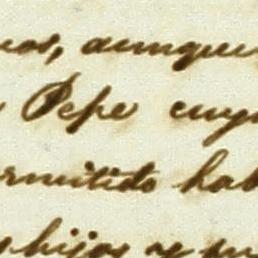 aunque
Pepe cuy
rmitido hab
hijos y pu